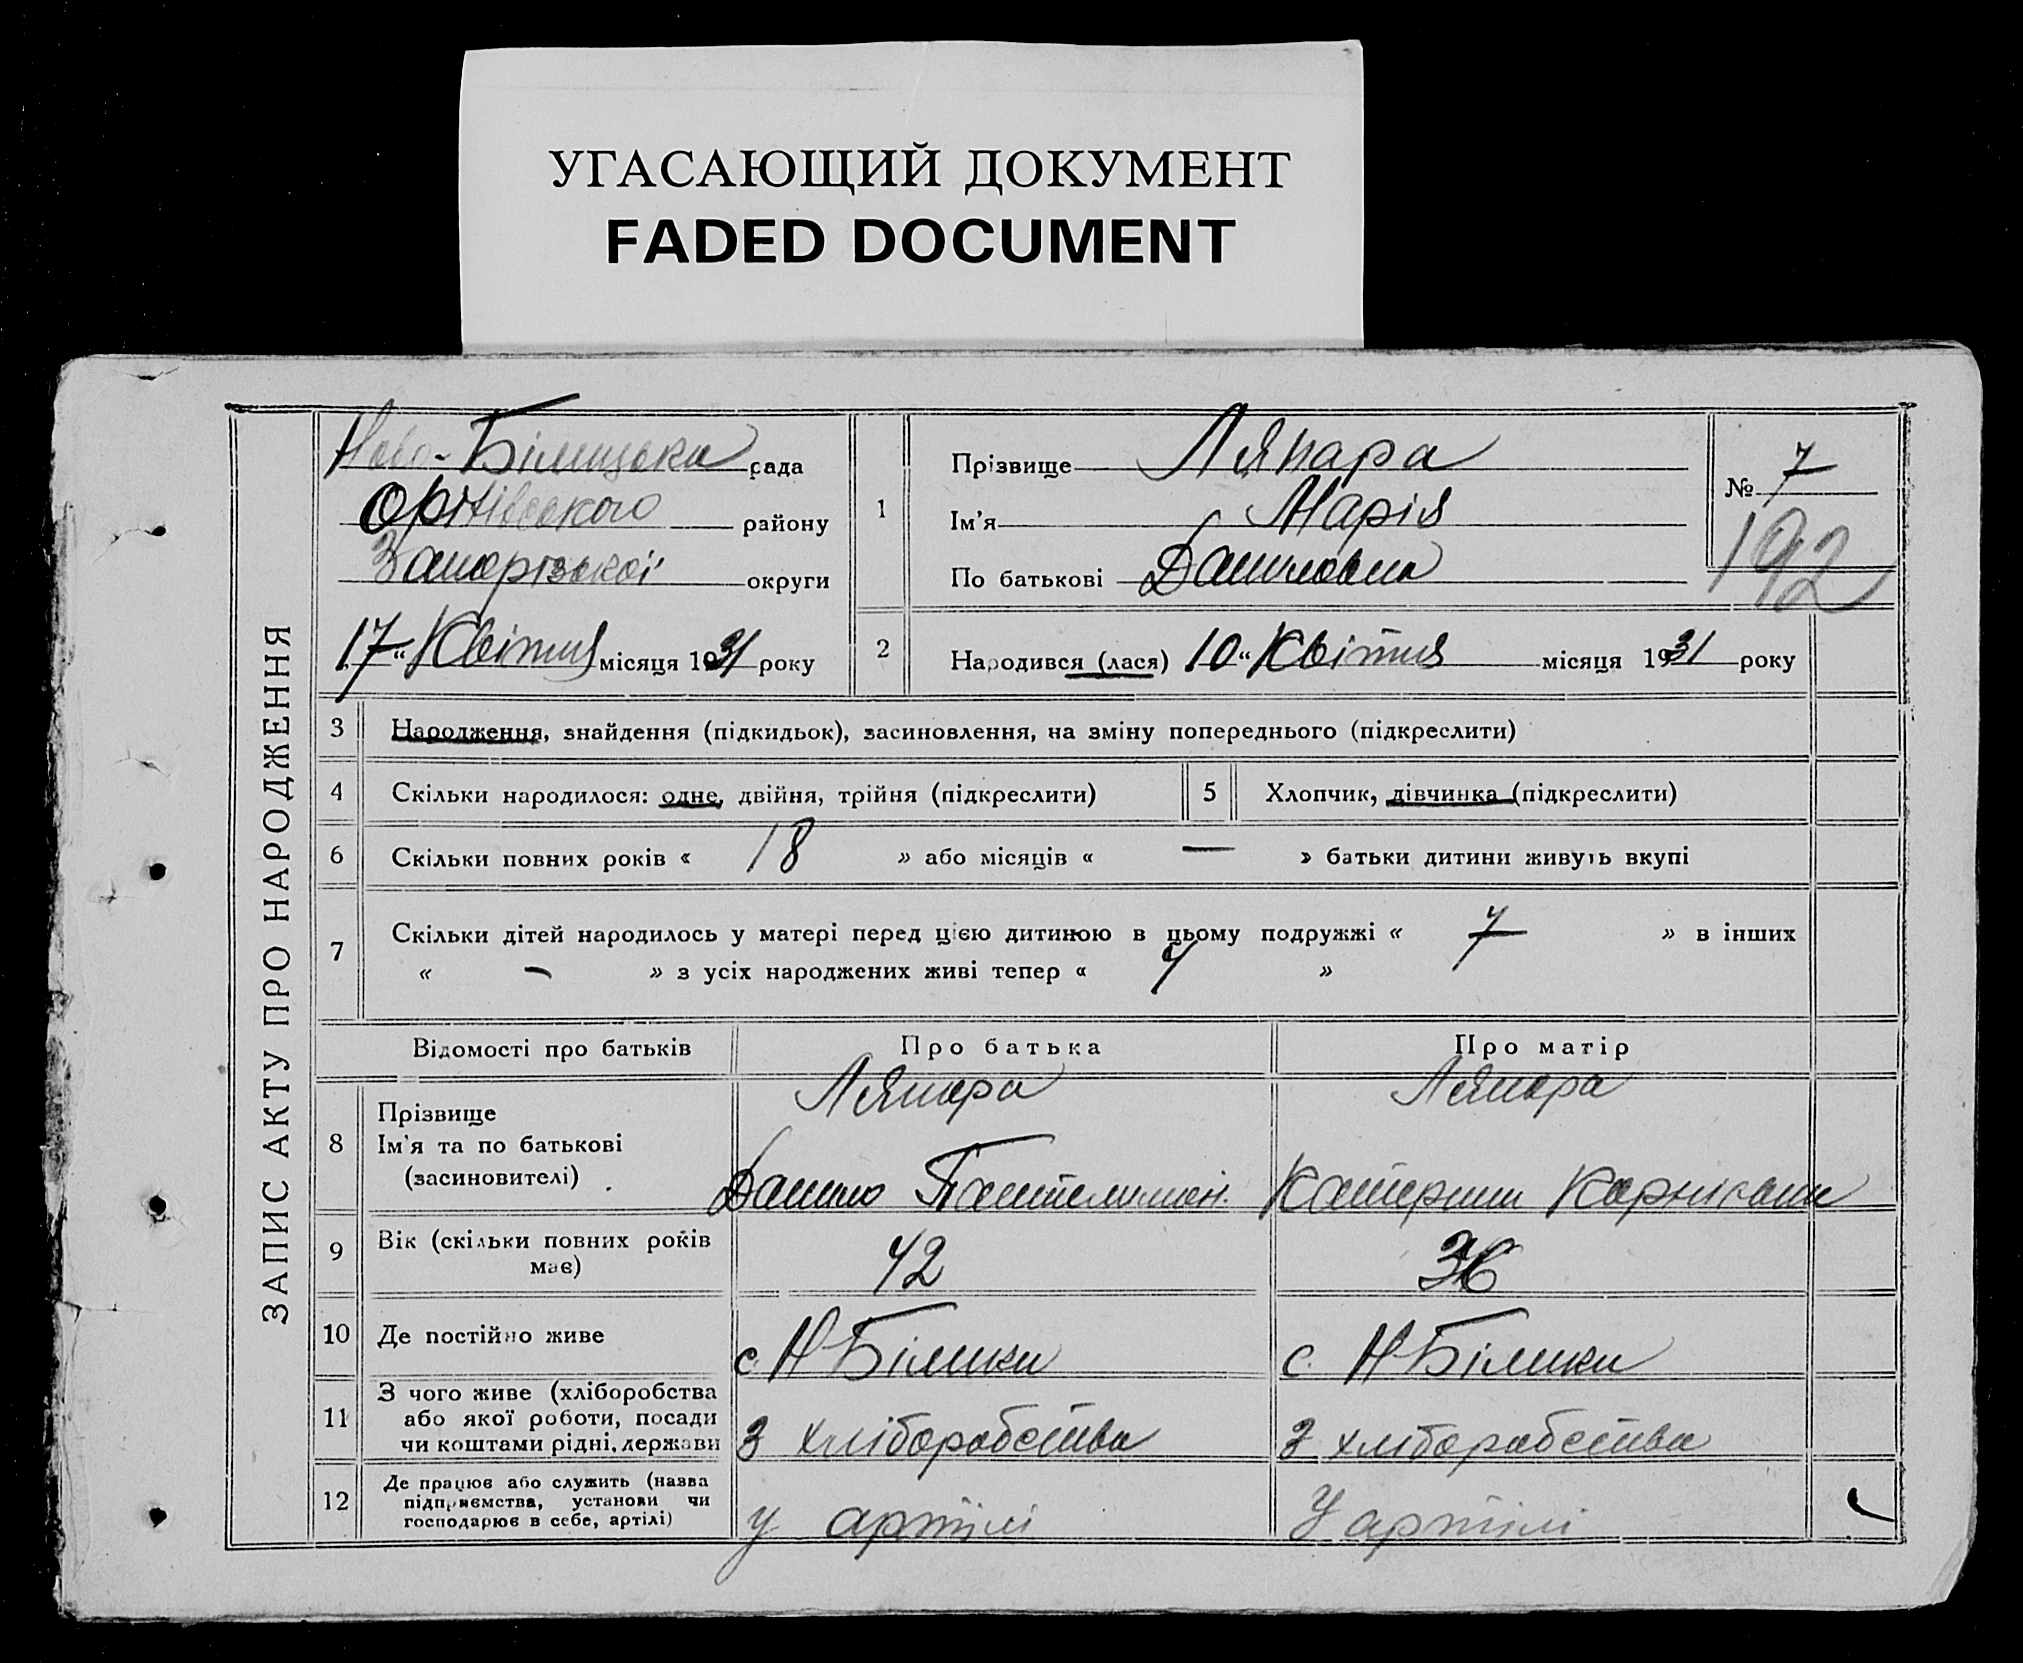 УГАСАЮЩИЙ ДОКУМЕНТ
FADED DOCUMENT
ЗАПИС АКТУ ПРО НАРОДЖЕННЯ
Ново-Білицька рада
Оріхівського району
Запорізької округи
17 “ Квітня місяця 1931 року
1
Прізвище Ляпара
Ім'я Марія
По батькові Даниловна
№ 7
192
2 Народився (лася) 10 “ Квітня місяця 1931 року
3 Народження, знайдення (підкидьок), засиновлення, на зміну попереднього (підкреслити)
4 Скільки народилося: одне, двійня, трійня (підкреслити)
5 Хлопчик, дівчинка (підкреслити)
6 Скільки повних років « 18 » або місяців « — » батьки дитини живуть вкупі
7 Скільки дітей народилось у матері перед цією дитиною в цьому подружжі « 7 » в інших
« – » з усіх народжених живі тепер « 4 »
Відомості про батьків Про батька Про матір
8 Прізвище
Ім'я та по батькові
(засиновителі)
Ляпара
Данило Пантелимон.
Ляпара
Катерина
9 Вік (скільки повних років
має)
42
36
10 Де постійно живе
с. Н-Білики
с. Н-Білики
11 З чого живе (хліборобства
або якої роботи, посади
чи коштами рідні, держави
З хліборобства
З хліборобства
12 Де працює або служить (назва
підприємства, установи чи
господарює в себе, артілі)
У артілі
У артілі